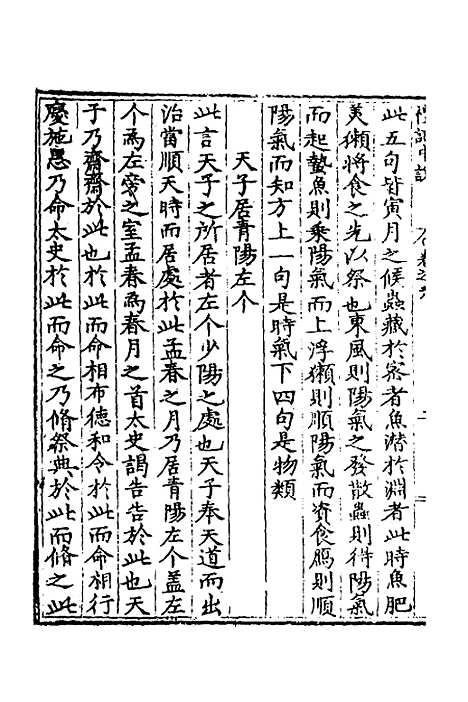 此五句皆寅月之候蟲藏於密者魚潛於淵者此時魚肥
美獺將食之先以祭也東風則陽氣之發散蟲則得陽氣
而起蟄魚則乘陽氣而上浮獺則順陽氣而資食鴈則順
陽氣而知方上一句是時氣下四句是物類
天子居青陽左个
此言天子之所居者左个少陽之處也天子奉天道而出
治當順天時而居處於此孟春之月乃居青陽左个蓋左
个爲左旁之室孟春爲春月之首太史謁告告於此也天
子乃齋齋於此也於此而命相布德和令於此而命相行
慶施恩乃命太史於此而命之乃脩祭典於此而脩之此